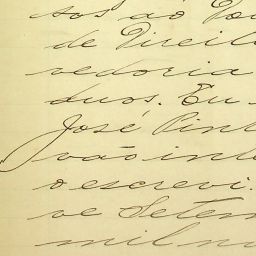 sos ao Dou
de Direito
vedoria
duos. Eu
José Pinh
vão inte
o escrevi.
ve Setem
mil no